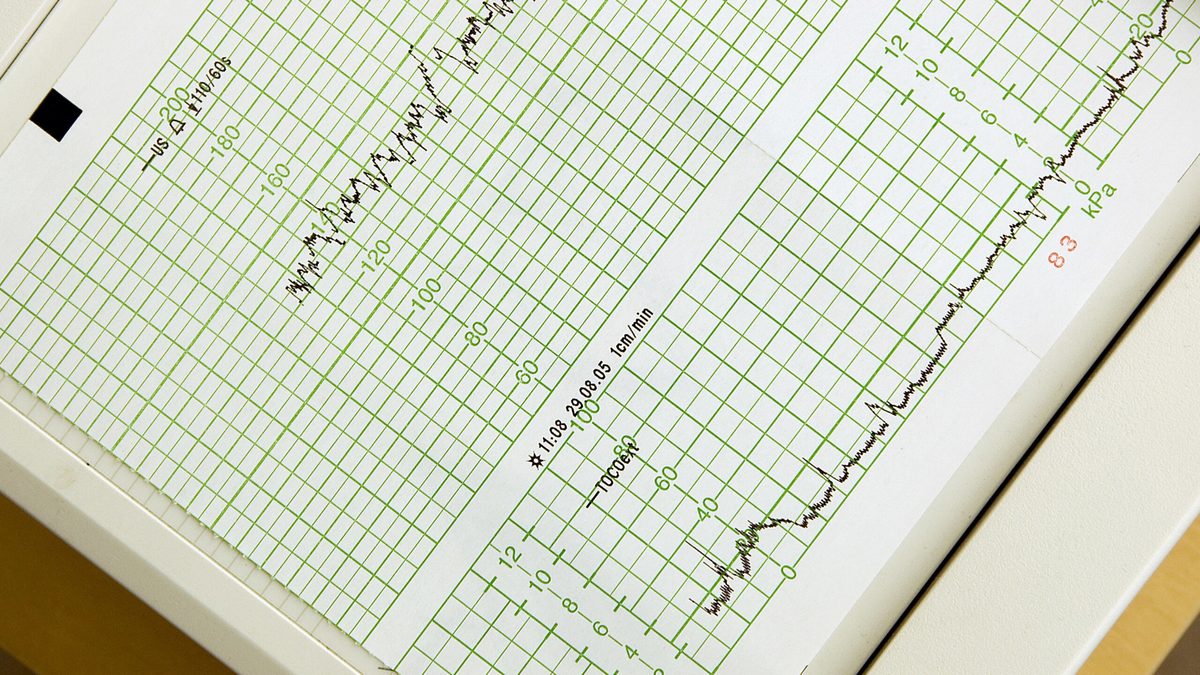 US 110/60s
200 180 160 120 100 80 60
11:08 29.08.05 1cm/min
100 80 60 40 0
TOCOext
12 10 8 6 4 2
12 10 8 6 4 0
kPa
20 0
83